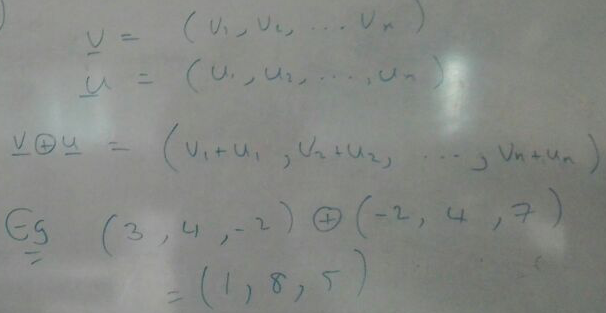 v = (v₁, v₂, ... vₙ)
u = (u₁, u₂, ..., uₙ)
v ⊕ u = (v₁+u₁, v₂+u₂, ..., vₙ+uₙ)
Eg (3, 4, -2) ⊕ (-2, 4, 7)
= (1, 8, 5)